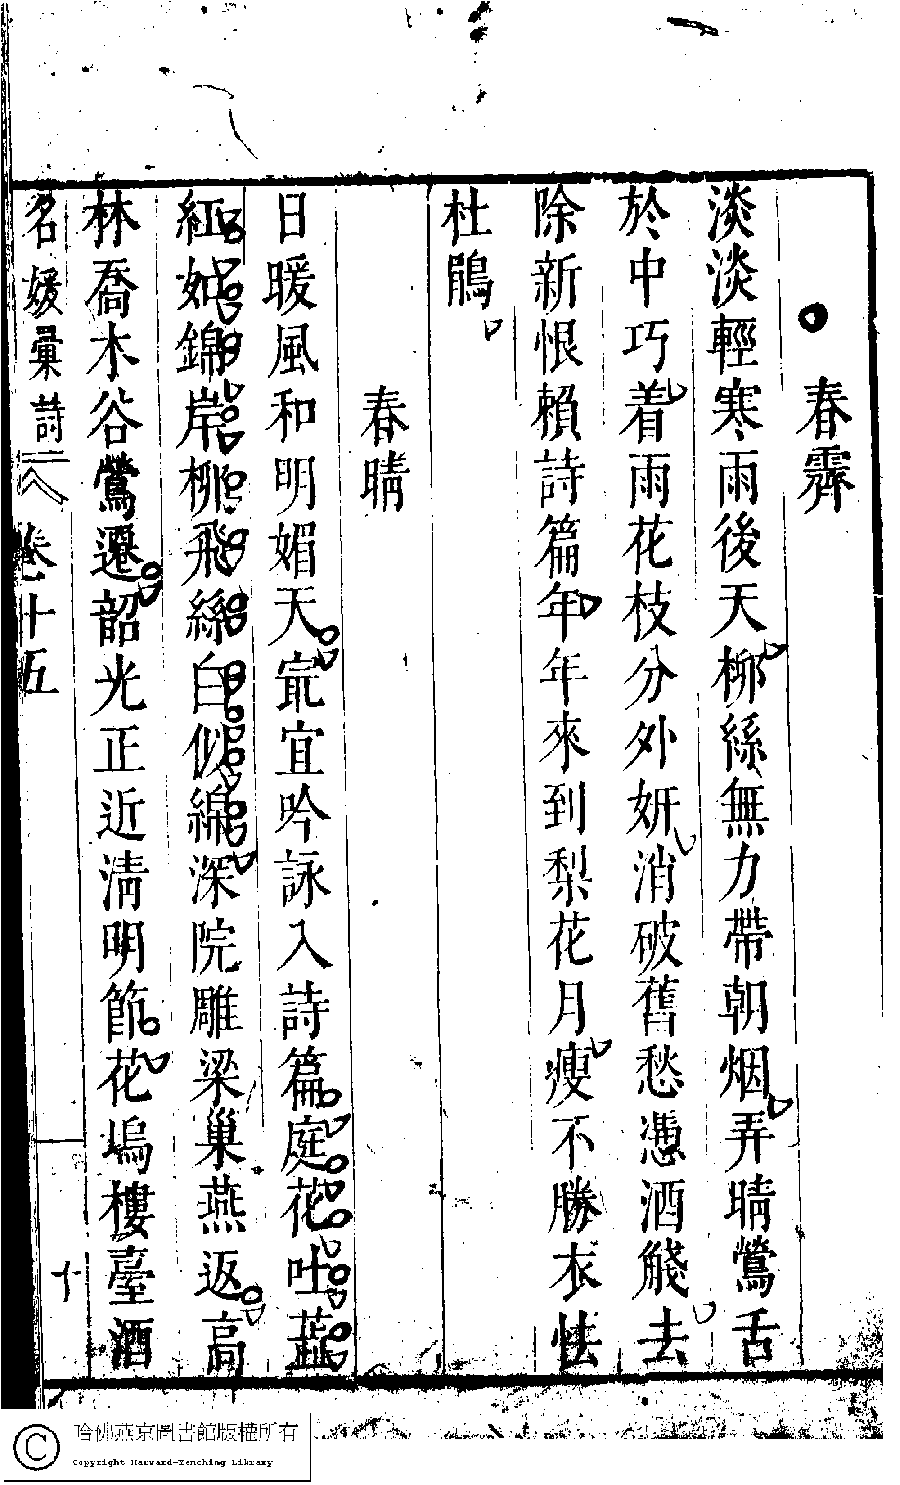 春霽
淡淡輕寒雨後天柳絲無力帶朝烟弄晴鶯舌
於中巧着雨花枝分外妍消破舊愁憑酒醆去
除新恨賴詩篇年年來到梨花月瘦不勝衣怯
杜鵑
春晴
日暖風和明媚天冣宜吟詠入詩篇庭花吐蕋
紅如錦岸柳飛絲白似綿深院雕梁巢燕返高
林喬木谷鶯遷韶光正近淸明節花塢樓臺酒
名媛彙詩 卷十五 十
哈佛燕京圖書館版權所有
Copyright Harvard-Yenching Library